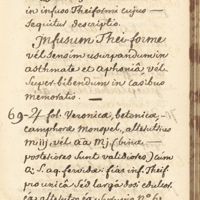 in infuso Theiformi cujus —
sequitur descriptio.
Infusum Thei-forme
vél sensim usurpandum in
asthmate et aphoniâ vel
super bibendum in casibus
memoratis. —
69-℞ fol. Veronica, betonica,
camphora Monspel., altultius
m iij vél aa Mj. (bina
posteriores sunt validiores) cum
q: s. aq. fervida: fias inf. Theif
pro unica sed larga dosi edulet.